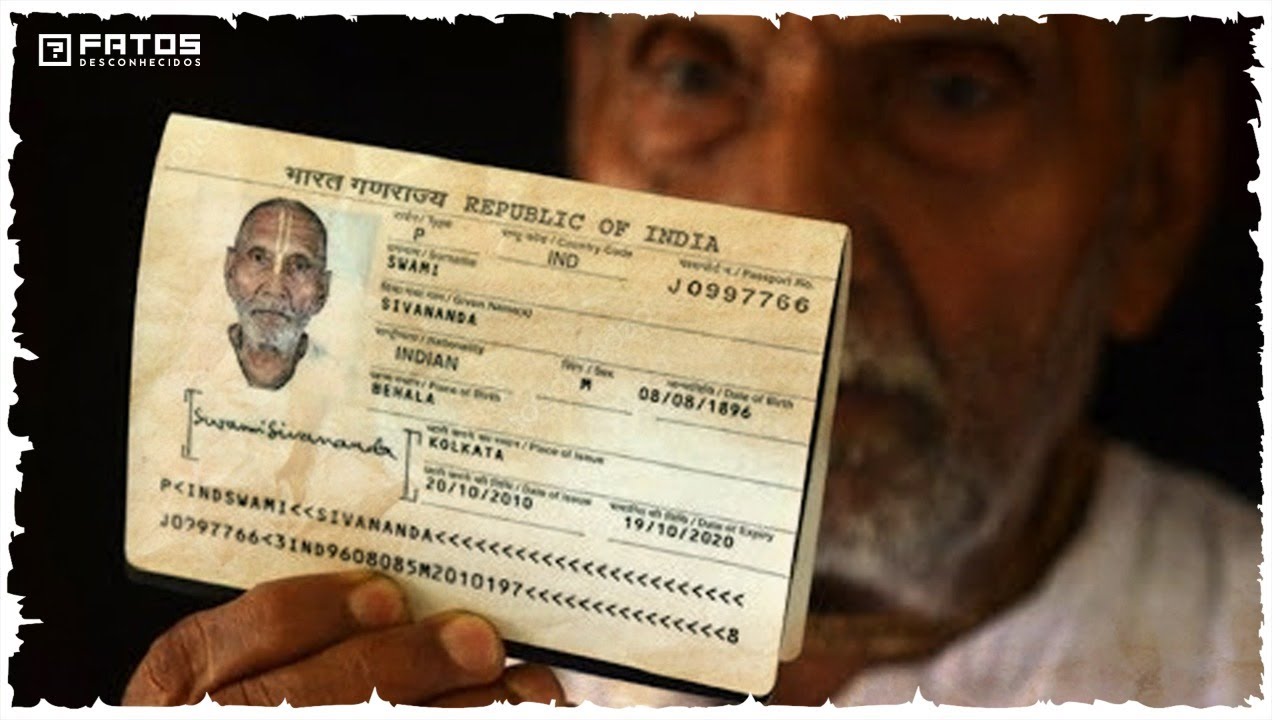 FATOS
DESCONHECIDOS
भारत गणराज्य REPUBLIC OF INDIA
टाईप / Type
P
राष्ट्र कोड / Country Code
IND
पासपोर्ट न. / Passport No.
J0997766
उपनाम / Surname
SWAMI
दिया गया नाम / Given Name(s)
SIVANANDA
राष्ट्रीयता / Nationality
INDIAN
लिंग / Sex
M
जन्मतिथि / Date of Birth
08/08/1896
जन्म स्थान / Place of Birth
BEHALA
जारी करने का स्थान / Place of Issue
KOLKATA
जारी करने की तिथि / Date of Issue
20/10/2010
समाप्ति की तिथि / Date of Expiry
19/10/2020
Swami Sivananda
P<INDSWAMI<<SIVANANDA<<<<<<<<<<<<<<<<<<<<<<<
J0997766<3IND9608085M2010197<<<<<<<<<<<<<<<8